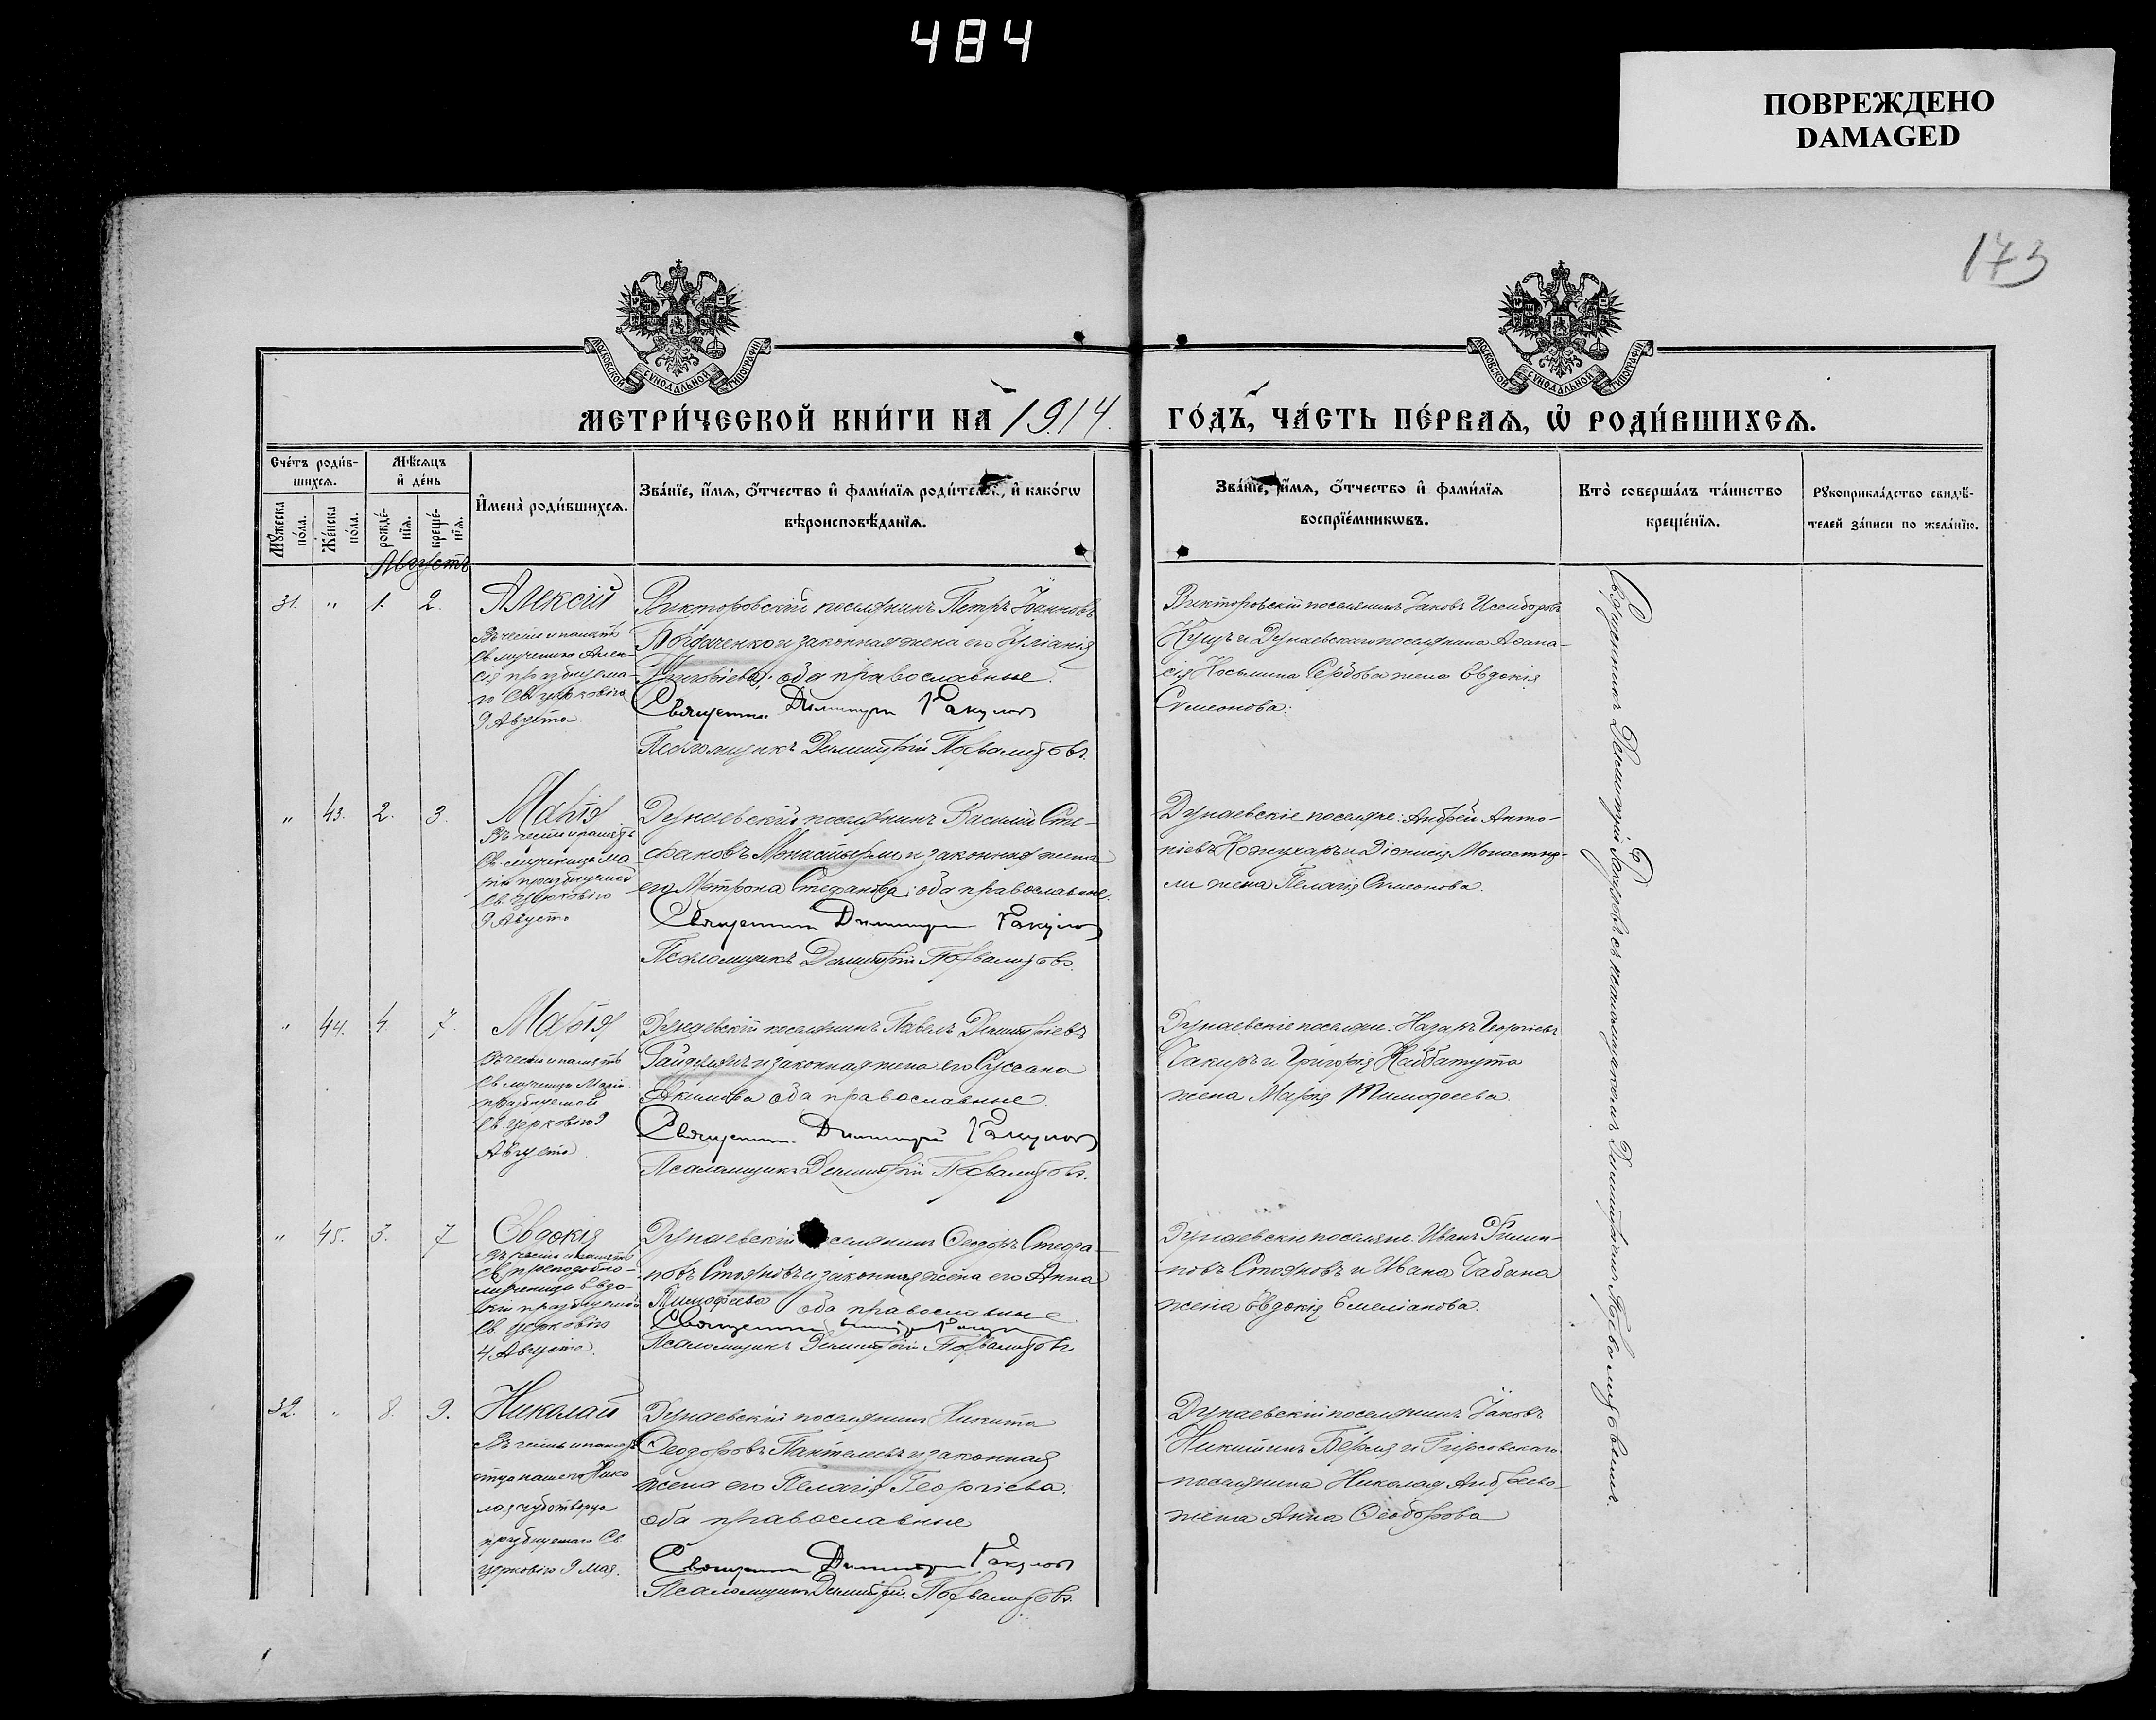 484
ПОВРЕЖДЕНО
DAMAGED
173
МОСКОВСКОЙ СУНОДАЛЬНОЙ ТИПОГРАФІИ
МОСКОВСКОЙ СУНОДАЛЬНОЙ ТИПОГРАФІИ
МЕТРИ́ЧЕСКОЙ КНИ́ГИ НА 1914. ГО́ДЪ, ЧА́СТЬ ПЕ́РВАѦ, Ѡ҆ РОДИ́ВШИХСѦ.
Сче́тъ роди́в-
шихсѧ.
Мꙋ́жеска
по́ла.
Же́нска
по́ла.
Мѣ́сѧцъ
и҆ де́нь
рожде́-
нїѧ.
креще́-
нїѧ.
И҆мена̀ роди́вшихсѧ.
Зва́нїе, и҆́мѧ, ѻ҆́тчество и҆ фами́лїѧ роди́телей, и҆ како́гѡ
вѣроисповѣ́данїѧ.
Зва́нїе, и҆́мѧ, ѻ҆́тчество и҆ фами́лїѧ
воспрїе́мникѡвъ.
Кто̀ соверша́лъ та́инство
креще́нїѧ.
Рꙋкоприкла́дство свидѣ́-
телей за́писи по жела́нїю.
Августъ
31. " 1. 2. Алексій
Въ честь и память
Св. мученика Алек-
сія празднуема-
го Св. церковію
9 Августа
Викторовскій поселянинъ Петръ Іоанновъ
и законная жена его Іуліанія
Григоріева, оба православные.
Священникъ Димитрій Гакуловъ
Псаломщикъ Димитрій
Викторовскій поселянинъ Іаковъ Исидоровъ
Кущъ и Дунаевскаго поселянина Аѳана-
сія Косьмина жена Евдокія
Симеонова.
" 43. 2. 3. Марія
Въ честь и память
Св. мученицы Ма-
ріи празднуемой
Св. церковію
9 Августа
Дунаевскій поселянинъ Василій Сте-
фановъ Монастырли и законная жена
его Матрона Стефанова, оба православные.
Священникъ Димитрій Гакуловъ
Псаломщикъ Димитрій
Дунаевскіе поселяне: Андрей Анто-
ніевъ Кожухаръ и Діонисія Монастыр-
ли жена Пелагія Симеонова.
" 44. 4. 7. Марія
Въ честь и память
Св. мученицы Маріи
празднуемой
Св. церковію 9
Августа.
Дунаевскій поселянинъ Павелъ Димитріевъ
и законная жена его Суссана
Акимова оба православные.
Священникъ Димитрій Гакуловъ
Псаломщикъ Димитрій
Дунаевскіе поселяне: Назаръ Георгіевъ
Чакиръ и Григорія
жена Марія Тимофеева.
" 45. 3. 7 Евдокія
Въ честь и память
Св. преподобно-
мученицы Евдо-
кіи празднуемой
Св. церковію
4 Августа.
Дунаевскій поселянинъ Ѳеодоръ Стефа-
новъ Стояновъ и законная жена его Анна
Тимофеева оба православные.
Священникъ Димитрій Гакуловъ
Псаломщикъ Димитрій
Дунаевскіе поселяне: Иванъ Филип-
повъ Стояновъ и Ивана Чабана
жена Евдокія Емеліанова.
32. " 8. 9. Николай
Въ честь и память
отца нашего Нико
лая чудотворца
празднуемаго Св.
церковію 9 мая.
Дунаевскій поселянинъ Никита
Ѳеодоровъ Пантелеевъ и законная
жена его Пелагія Георгіева.
оба православные
Священникъ Димитрій Гакуловъ
Псаломщикъ Димитрій
Дунаевскій поселянинъ Іаковъ
Никитинъ и
поселянина Николая Андреева
жена Анна Ѳеодорова
Священникъ Димитрій Гакуловъ съ псаломщикомъ Димитріемъ